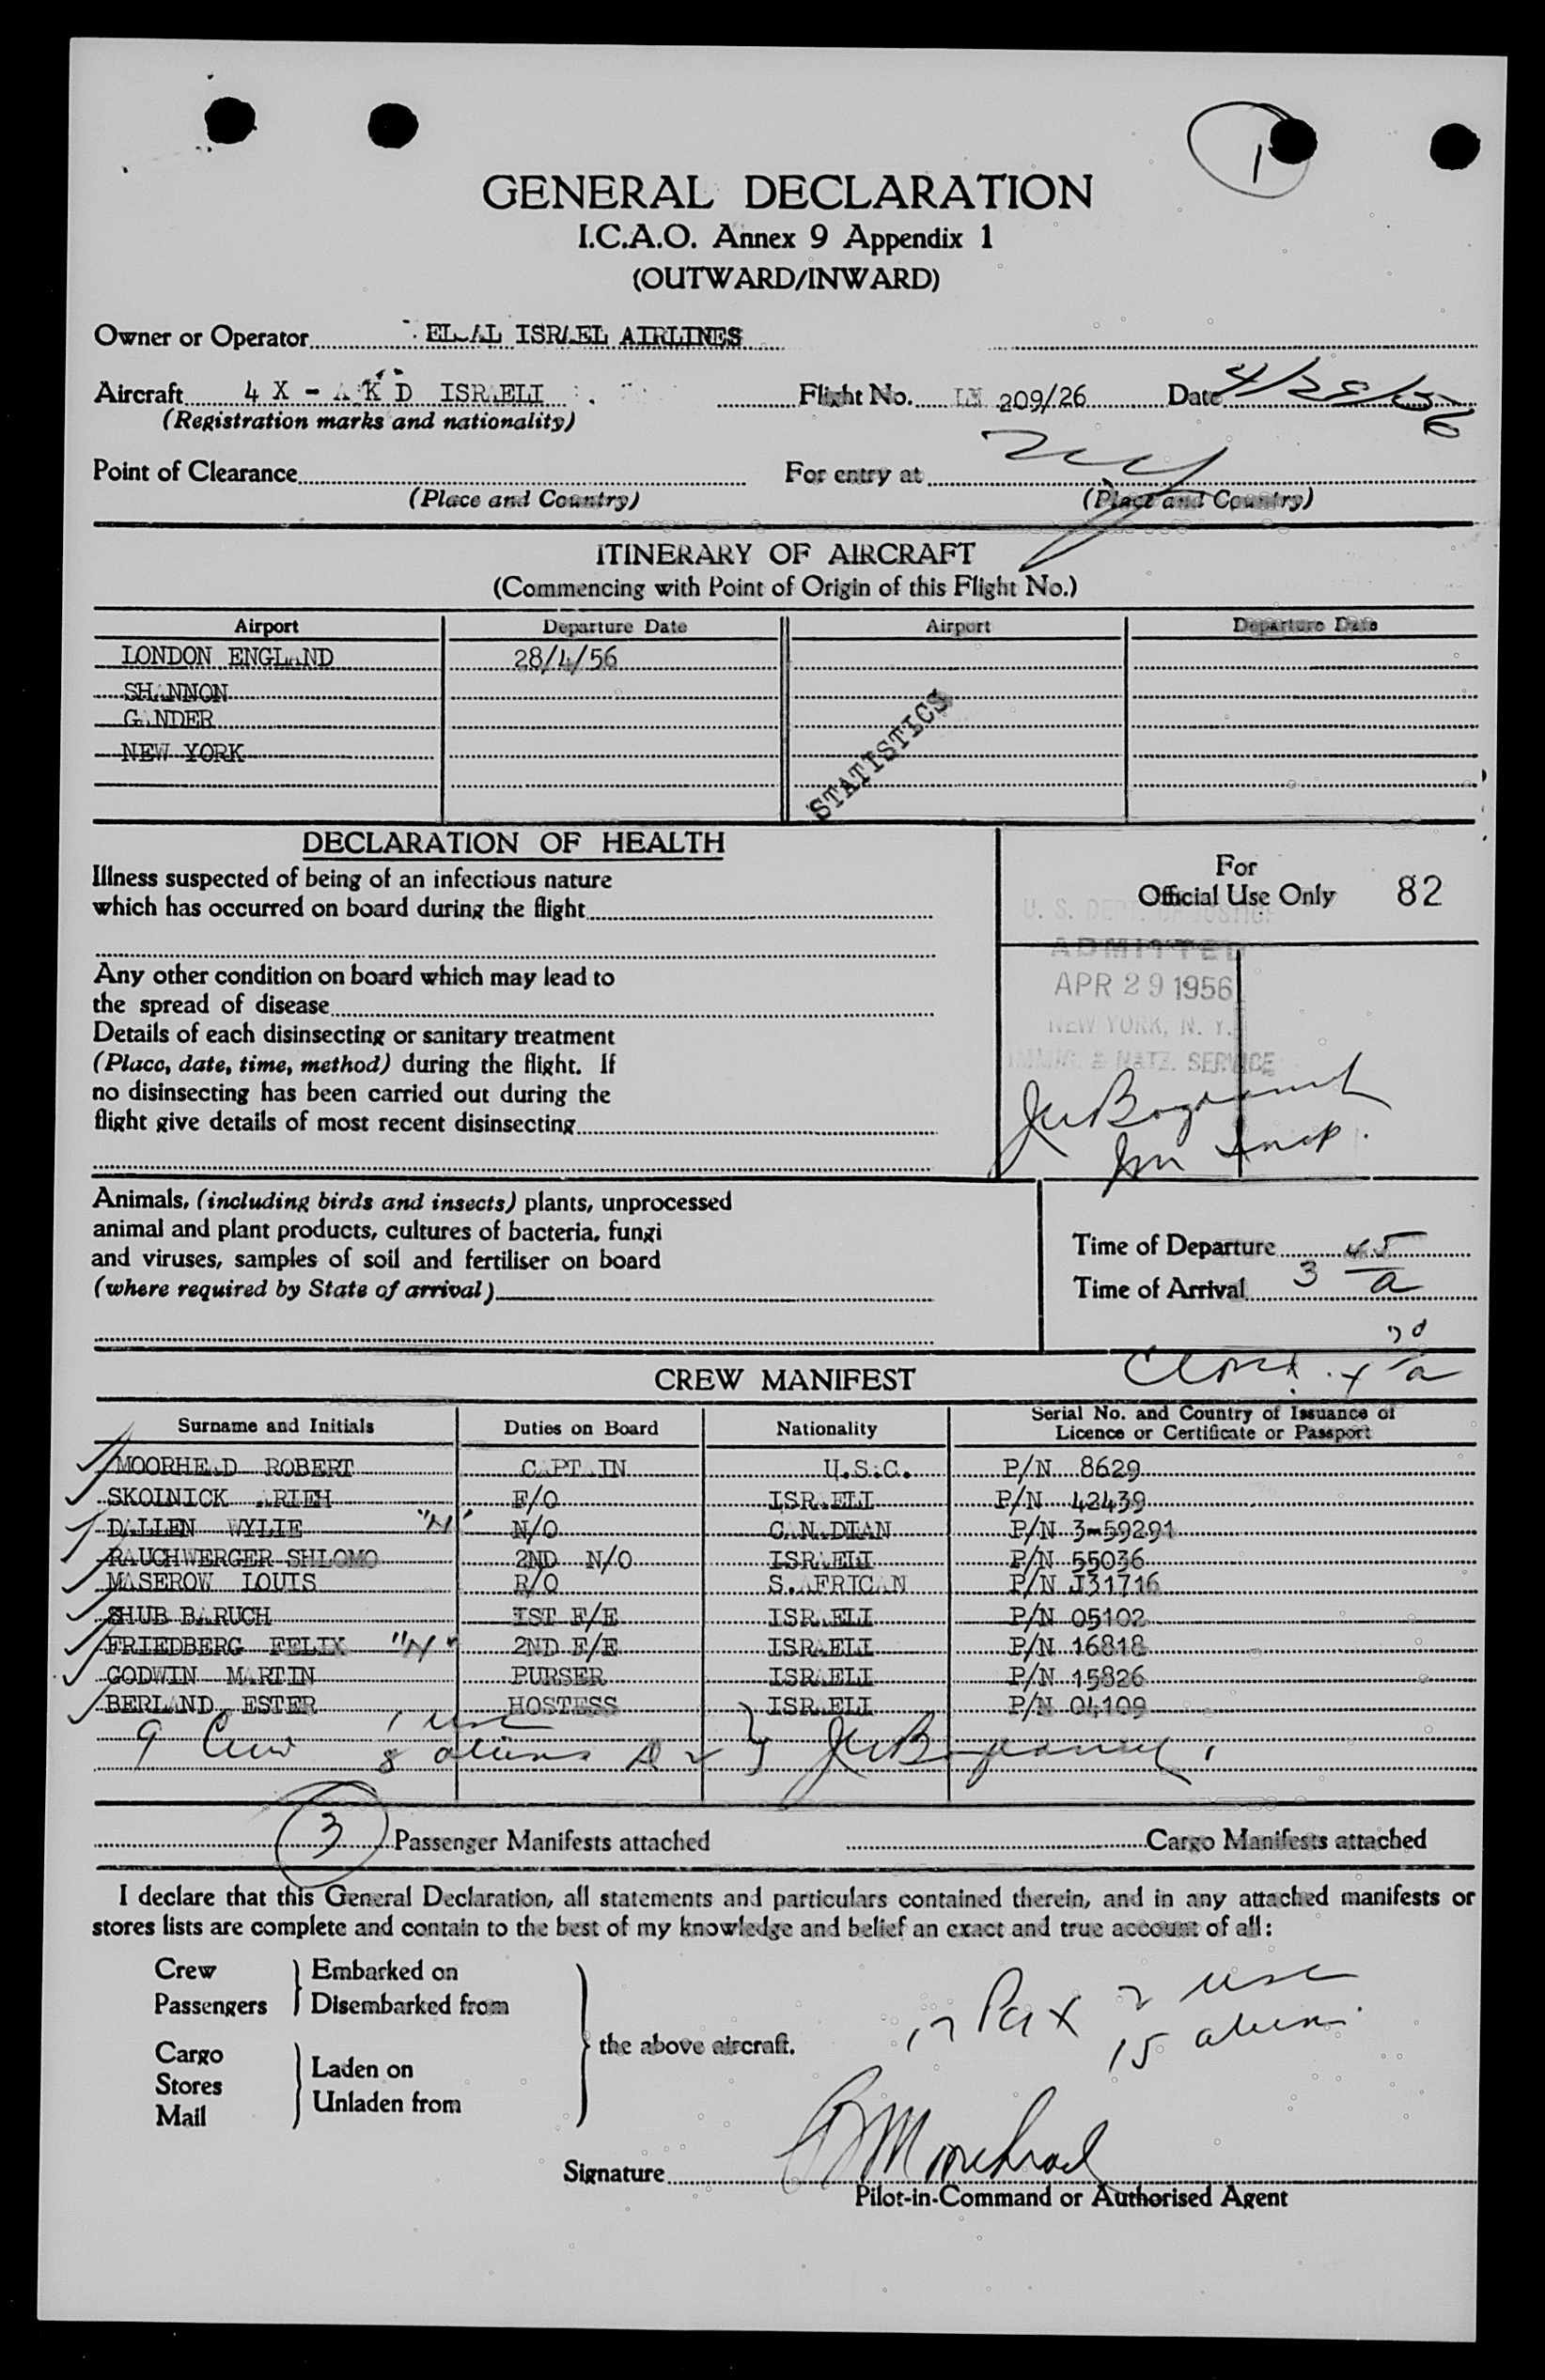 1
GENERAL DECLARATION
I.C.A.O. Annex 9 Appendix 1
(OUTWARD/INWARD)
Owner or Operator EL-AL ISRAEL AIRLINES
Aircraft 4 X - A K D ISRAELI Flight No. 209/26 Date 4/28/56
(Registration marks and nationality)
Point of Clearance For entry at NY
(Place and Country) (Place and Country)
ITINERARY OF AIRCRAFT
(Commencing with Point of Origin of this Flight No.)
Airport Departure Date Airport Departure Date
LONDON ENGLAND 28/4/56
SHANNON
GANDER
NEW YORK
STATISTICS
DECLARATION OF HEALTH
Illness suspected of being of an infectious nature
which has occurred on board during the flight
Any other condition on board which may lead to
the spread of disease
Details of each disinsecting or sanitary treatment
(Place, date, time, method) during the flight. If
no disinsecting has been carried out during the
flight give details of most recent disinsecting
For
Official Use Only 82
U. S. DEPT. OF JUSTICE
ADMITTED
APR 29 1956
NEW YORK, N. Y.
IMMIG. & NATZ. SERVICE
Imm Insp.
Animals, (including birds and insects) plants, unprocessed
animal and plant products, cultures of bacteria, fungi
and viruses, samples of soil and fertiliser on board
(where required by State of arrival)
Time of Departure
Time of Arrival 3 45 a
CREW MANIFEST
Surname and Initials Duties on Board Nationality Serial No. and Country of Issuance of
Licence or Certificate or Passport
MOORHEAD ROBERT CAPTAIN U.S.C. P/N 8629
SKOINICK ARIEH F/O ISRAELI P/N 42439
DALLEN WYLIE "N" N/O CANADIAN P/N 3-59291
RAUCHWERGER SHLOMO 2ND N/O ISRAELI P/N 55036
MASEROW LOUIS R/O S.AFRICAN P/N J31716
SHUB BARUCH IST F/E ISRAELI P/N 05102
FRIEDBERG FELIX "N" 2ND F/E ISRAELI P/N 16818
GODWIN MARTIN PURSER ISRAELI P/N 15826
BERLAND ESTER HOSTESS ISRAELI P/N 04109
9 Crew 1 usc
8 aliens
3 Passenger Manifests attached Cargo Manifests attached
I declare that this General Declaration, all statements and particulars contained therein, and in any attached manifests or
stores lists are complete and contain to the best of my knowledge and belief an exact and true account of all:
Crew Embarked on
Passengers Disembarked from
the above aircraft.
Cargo Laden on
Stores
Mail Unladen from
17 Pax 2 usc
15 aliens
Signature RMoorhead
Pilot-in-Command or Authorised Agent